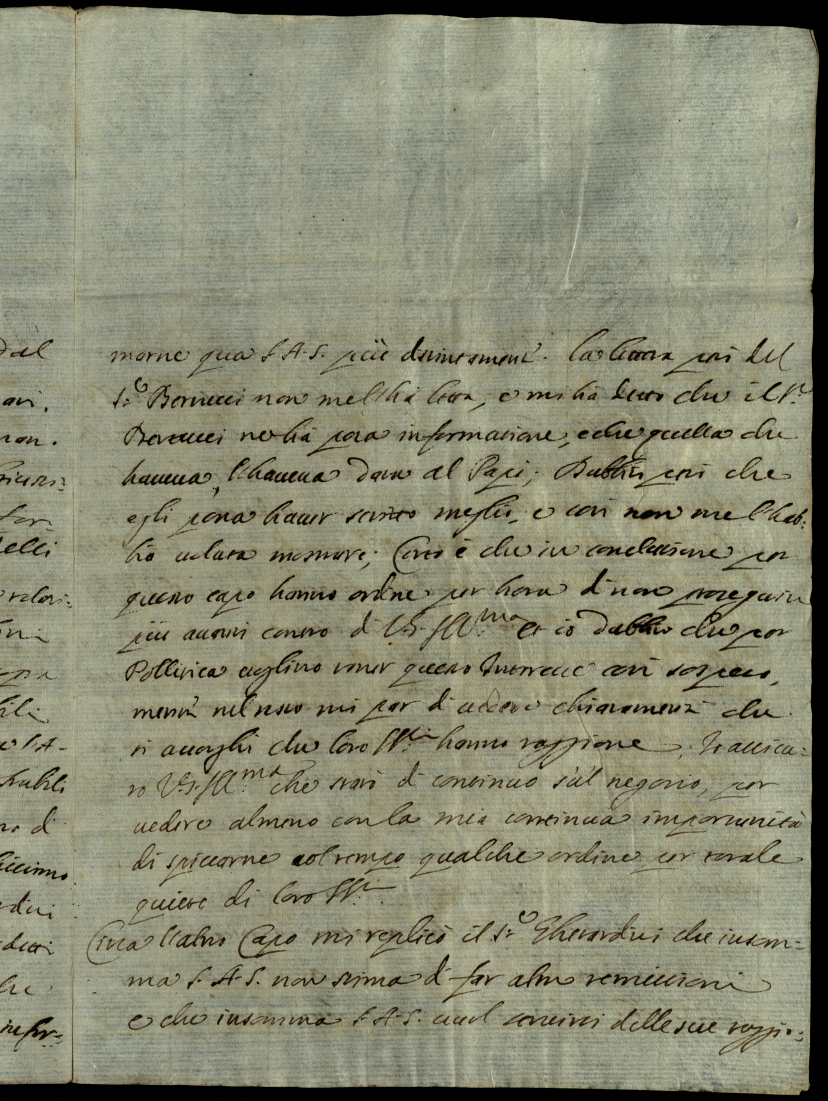 marne qua S. A. S. più distintamente. La lettera poi del
S.r Bernucci non me l'hà letta, e mi ha detto che il S.r
Bernucci ne hà poca informatione, e che quella che
haveva, l'haveva data al Papi; Dubbito poi che
egli possa haver scritto meglio, e così non me l'hab:
bia voluta mostrare; Certo è che in conclusione per
questo capo hanno ordine per hora di non proseguire
più avanti contro di V.S. Ill.ma et io dubbito che per
Pollitica voglino tener questo Interesse così sospeso,
mentre nel resto mi par di vedere chiaramente che
si accorghi che loro SS.ri hanno raggione. Io assicu:
ro V.S. Ill.ma che starò di continuo sù'l negotio, per
vedere almeno con la mia continua importunità
di spiccarne col tempo qualche ordine per totale
quiete di loro SS.ri
Circa l'altro Capo mi replicò il S.r Gherardini che insom=
ma S. A. S. non stima di far altre remissioni
e che insomma S. A. S. vuol servirsi delle sue raggio: